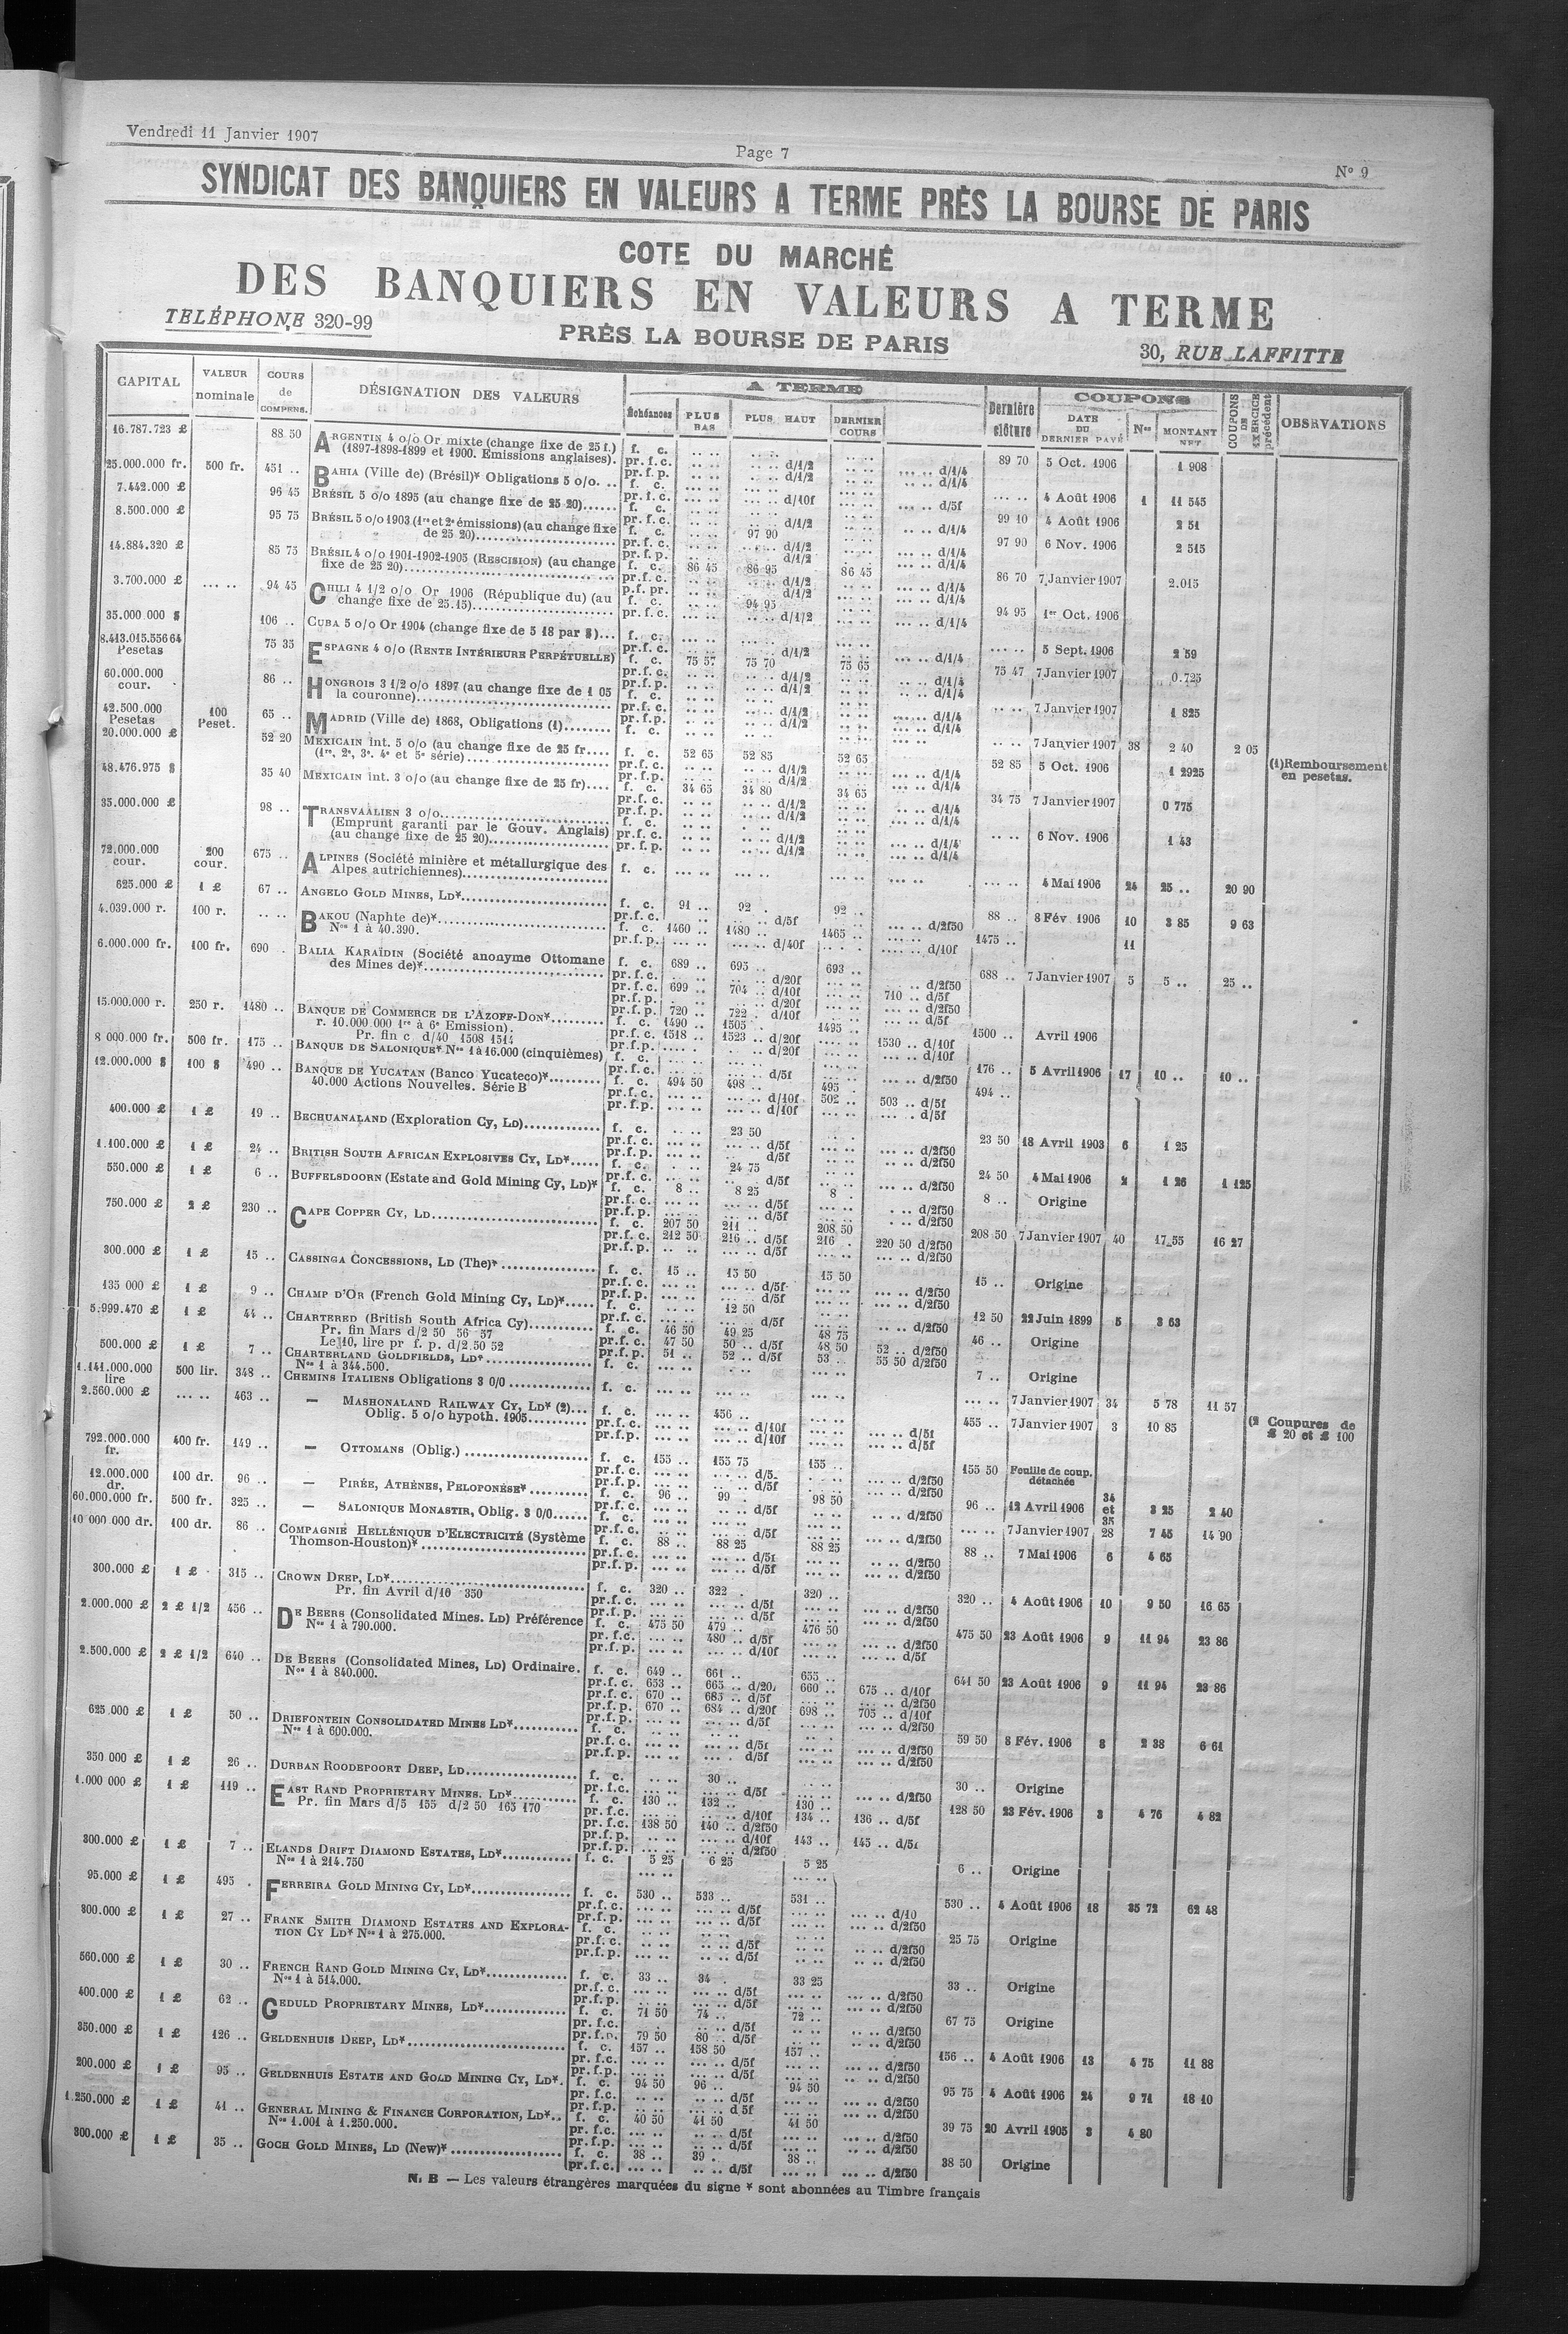 Vendredi 11 Janvier 1907
Page 7
N° 9
SYNDICAT DES BANQUIERS EN VALEURS A TERME PRÈS LA BOURSE DE PARIS
COTE DU MARCHÉ
DES BANQUIERS EN VALEURS A TERME
TELÉPHONE 320-99
PRÈS LA BOURSE DE PARIS
30, RUE LAFFITTE
CAPITAL VALEUR nominale COURS de COMPENS. DÉSIGNATION DES VALEURS A TERME Échéances PLUS BAS PLUS HAUT DERNIER COURS Dernière clôture COUPONS DATE DU DERNIER PAYÉ Nos MONTANT NET COUPONS DE EXERCICE précédent OBSERVATIONS
16.787.723 £ 88 50 ARGENTIN 4 o/o Or mixte (change fixe de 25 f.) f. c. 89 70 5 Oct. 1906 1 908
(1897-1898-1899 et 1900. Emissions anglaises). pr. f. c. d/1/2 d/1/4
pr. f. p. d/1/2 d/1/4
25.000.000 fr. 500 fr. 451 .. BAHIA (Ville de) (Brésil)* Obligations 5 o/o. .. f. c. 4 Août 1906 1 11 545
pr. f. c. d/10f d/5f
7.442.000 £ 96 45 BRÉSIL 5 o/o 1895 (au change fixe de 25 20) f. c. 99 10 4 Août 1906 2 51
pr. f. c. d/1/2 d/1/4
8.500.000 £ 95 75 BRÉSIL 5 o/o 1903 (1re et 2e émissions) (au change fixe f. c. 97 90 97 90 6 Nov. 1906 2 515
de 25 20) pr. f. c. d/1/2 d/1/4
pr. f. p. d/1/2 d/1/4
14.884.320 £ 85 75 BRÉSIL 4 o/o 1901-1902-1905 (RESCISION) (au change f. c. 86 45 86 95 86 45 86 70 7 Janvier 1907 2.015
fixe de 25 20) pr. f. c. d/1/2 d/1/4
p.f. pr. d/1/2 d/1/4
3.700.000 £ 94 45 CHILI 4 1/2 o/o Or 1906 (République du) (au f. c. 94 95 94 95 1er Oct. 1906
change fixe de 25.15) pr. f. c. d/1/2 d/1/4
35.000.000 $ 106 .. CUBA 5 o/o Or 1904 (change fixe de 5 18 par $) f. c. 5 Sept. 1906 2 59
pr. f. c. d/1/2 d/1/4
8.413.015.556 64 Pesetas 75 35 ESPAGNE 4 o/o (RENTE INTÉRIEURE PERPÉTUELLE) f. c. 75 57 75 70 75 65 75 47 7 Janvier 1907 0.725
pr. f. c. d/1/2 d/1/4
pr. f. p. d/1/2 d/1/4
60.000.000 cour. 86 .. HONGROIS 3 1/2 o/o 1897 (au change fixe de 1 05 f. c. 7 Janvier 1907 1 825
la couronne) pr. f. c. d/1/2 d/1/4
pr. f. p. d/1/2 d/1/4
42.500.000 Pesetas 100 Peset. 65 .. MADRID (Ville de) 1868, Obligations (1) f. c. 7 Janvier 1907 38 2 40 2 05 (1) Remboursement en pesetas.
20.000.000 £ 52 20 MEXICAIN int. 5 o/o (au change fixe de 25 fr. f. c. 52 65 52 85 52 65 52 85 5 Oct. 1906 1 2925
(1re, 2e, 3e, 4e et 5e série) pr. f. c. d/1/2 d/1/4
pr. f. p. d/1/2 d/1/4
48.476.975 $ 35 40 MEXICAIN int. 3 o/o (au change fixe de 25 fr) f. c. 34 65 34 80 34 65 34 75 7 Janvier 1907 0 775
pr. f. c. d/1/2 d/1/4
pr. f. p. d/1/2 d/1/4
35.000.000 £ 98 .. TRANSVAALIEN 3 o/o f. c. 6 Nov. 1906 1 43
(Emprunt garanti par le Gouv. Anglais) pr. f. c. d/1/2 d/1/4
(au change fixe de 25 20) pr. f. p. d/1/2 d/1/4
72.000.000 cour. 200 cour. 675 .. ALPINES (Société minière et métallurgique des f. c. 4 Mai 1906 24 25 .. 20 90
Alpes autrichiennes)
625.000 £ 1 £ 67 .. ANGELO GOLD MINES, LD* f. c. 91 .. 92 . 92 .. 88 .. 8 Fév 1906 10 3 85 9 63
pr. f. c. d/5f d/2f50
4.039.000 r. 100 r. BAKOU (Naphte de)* f. c. 1460 .. 1480 .. 1465 .. 1475 .. 11
Nos 1 à 40.390. pr. f. p. d/40f d/10f
6.000.000 fr. 100 fr. 690 . BALIA KARAÏDIN (Société anonyme Ottomane f. c. 689 .. 695 .. 693 .. 688 .. 7 Janvier 1907 5 5 .. 25 ..
des Mines de)* pr. f. c. d/20f d/2f50
pr. f. c. 699 .. 704 .. d/10f 710 .. d/5f
pr. f. p. d/20f d/2f50
pr. f. p. 720 .. 722 . d/10f d/5f
15.000.000 r. 250 r. 1480 .. BANQUE DE COMMERCE DE L'AZOFF-DON* f. c. 1490 .. 1505 . 1495 .. 1500 .. Avril 1906
r. 10.000.000 1re à 6e Emission). pr. f. c. 1518 .. 1523 .. d/20f 1530 .. d/10f
Pr. fin c d/40 1508 1514 pr. f. p. d/20f d/10f
8 000.000 fr. 500 fr. 175 .. BANQUE DE SALONIQUE* Nos 1 à 16.000 (cinquièmes) f. c. 176 .. 5 Avril 1906 17 10 .. 10 ..
pr. f. c. d/5f d/2f50
12.000.000 $ 100 $ 490 .. BANQUE DE YUCATAN (Banco Yucateco)* f. c. 494 50 498 .. 495 .. 494 ..
40.000 Actions Nouvelles. Série B pr. f. c. d/10f 502 .. 503 .. d/5f
pr. f. p. d/10f d/5f
400.000 £ 1 £ 19 .. BECHUANALAND (Exploration Cy, LD) f. c. 23 50 23 50 18 Avril 1903 6 1 25
pr. f. c. d/5f d/2f50
pr. f. p. d/5f d/2f50
1.100.000 £ 1 £ 24 .. BRITISH SOUTH AFRICAN EXPLOSIVES CY, LD* f. c. 24 75 24 50 4 Mai 1906 2 1 26 1 125
pr. f. c. d/5f d/2f50
550.000 £ 1 £ 6 .. BUFFELSDOORN (Estate and Gold Mining Cy, LD)* f. c. 8 .. 8 25 8 . 8 .. Origine
pr. f. c. d/5f d/2f50
pr. f. p. d/5f d/2f50
750.000 £ 2 £ 230 .. CAPE COPPER CY, LD f. c. 207 50 211 .. 208 50 208 50 7 Janvier 1907 40 17 55 16 27
pr. f. c. 212 50 216 .. d/5f 216 . 220 50 d/2f50
pr. f. p. d/5f d/2f50
300.000 £ 1 £ 15 .. CASSINGA CONCESSIONS, LD (The)* f. c. 15 .. 15 50 15 50 15 .. Origine
pr. f. c. d/5f d/2f50
pr. f. p. d/5f d/2f50
135 000 £ 1 £ 9 .. CHAMP D'OR (French Gold Mining Cy, LD)* f. c. 12 50 12 50 22 Juin 1899 5 3 63
pr. f. c. d/5f d/2f50
5.999.470 £ 1 £ 44 .. CHARTERED (British South Africa Cy) f. c. 46 50 49 25 48 75 46 .. Origine
Pr. fin Mars d/2 50 56 57 pr. f. c. 47 50 50 .. d/5f 48 50 52 .. d/2f50
Le 10, lire pr f. p. d/2.50 52 pr. f. p. 51 .. 52 .. d/5f 53 . 55 50 d/2f50
500.000 £ 1 £ 7 .. CHARTERLAND GOLDFIELDS, LD* f. c. 7 .. Origine
Nos 1 à 344.500.
1.141.000.000 lire 500 lir. 348 .. CHEMINS ITALIENS Obligations 3 0/0 f. c. 7 Janvier 1907 34 5 78 11 57
2.560.000 £ 463 .. — MASHONALAND RAILWAY CY, LD* (2) f. c. 456 .. 455 .. 7 Janvier 1907 3 10 85 (2 Coupures de £ 20 et £ 100
Oblig. 5 o/o hypoth. 1905 pr. f. c. d/10f d/5f
pr. f. p. d/10f d/5f
792.000.000 fr. 400 fr. 149 .. — OTTOMANS (Oblig.) f. c. 155 .. 155 75 155 .. 155 50 Feuille de coup. détachée
pr. f. c. d/5 d/2f50
pr. f. p. d/5f d/2f50
12.000.000 dr. 100 dr. 96 .. — PIRÉE, ATHÈNES, PELOPONÈSE* f. c. 96 .. 99 . 98 50 96 .. 12 Avril 1906 34 et 35 3 25 2 40
pr. f. c. d/5f d/2f50
60.000.000 fr. 500 fr. 325 .. — SALONIQUE MONASTIR, Oblig. 3 0/0 f. c. 7 Janvier 1907 28 7 45 14 90
pr. f. c. d/5f d/2f50
10 000 000 dr. 100 dr. 86 .. COMPAGNIE HELLÉNIQUE D'ELECTRICITÉ (Système f. c. 88 .. 88 25 88 25 88 .. 7 Mai 1906 6 4 65
Thomson-Houston)* pr. f. c. d/5f d/2f50
pr. f. p. d/5f d/2f50
300.000 £ 1 £ 315 .. CROWN DEEP, LD* f. c. 320 .. 322 . 320 .. 320 .. 4 Août 1906 10 9 50 16 65
Pr. fin Avril d/10 350 pr. f. c. d/5f d/2f50
pr. f. p. d/5f d/2f50
2.000.000 £ 2 £ 1/2 456 .. DE BEERS (Consolidated Mines. LD) Préférence f. c. 475 50 479 .. 476 50 475 50 23 Août 1906 9 11 94 23 86
Nos 1 à 790.000. pr. f. c. 480 .. d/5f d/2f50
pr. f. p. d/10f d/5f
2.500.000 £ 2 £ 1/2 640 .. DE BEERS (Consolidated Mines, LD) Ordinaire. f. c. 649 .. 661 .. 655 .. 641 50 23 Août 1906 9 11 94 23 86
Nos 1 à 840.000. pr. f. c. 653 .. 665 .. d/20f 660 .. 675 .. d/10f
pr. f. c. 670 .. 685 .. d/5f d/2f50
pr. f. p. 670 .. 684 .. d/20f 698 .. 705 .. d/10f
pr. f. p. d/5f d/2f50
625.000 £ 1 £ 50 .. DRIEFONTEIN CONSOLIDATED MINES LD* f. c. 59 50 8 Fév. 1906 8 2 38 6 61
Nos 1 à 600.000. pr. f. c. d/5f d/2f50
pr. f. p. d/5f d/2f50
350 000 £ 1 £ 26 .. DURBAN ROODEPOORT DEEP, LD f. c. 30 .. 30 .. Origine
pr. f. c. d/5f d/2f50
1.000 000 £ 1 £ 119 .. EAST RAND PROPRIETARY MINES. LD* f. c. 130 .. 132 .. 130 .. 128 50 23 Fév. 1906 3 4 76 4 82
Pr. fin Mars d/5 155 d/2 50 165 170 pr. f. c. d/10f 134 .. 136 .. d/5f
pr. f. c. 138 50 140 .. d/2f50
pr. f. p. d/10f 143 .. 145 .. d/5f
pr. f. p. d/2f50
300.000 £ 1 £ 7 .. ELANDS DRIFT DIAMOND ESTATES, LD* f. c. 5 25 6 25 5 25 6 .. Origine
Nos 1 à 214.750
95.000 £ 1 £ 495 . FERREIRA GOLD MINING CY, LD* f. c. 530 .. 533 .. 531 .. 530 .. 4 Août 1906 18 35 72 62 48
pr. f. c. d/5f d/10
pr. f. p. d/5f d/2f50
300.000 £ 1 £ 27 .. FRANK SMITH DIAMOND ESTATES AND EXPLORA- f. c. 25 75 Origine
TION CY LD* Nos 1 à 275.000. pr. f. c. d/5f d/2f50
pr. f. p. d/5f d/2f50
560.000 £ 1 £ 30 .. FRENCH RAND GOLD MINING CY, LD* f. c. 33 .. 34 . 33 25 33 .. Origine
Nos 1 à 514.000. pr. f. c. d/5f d/2f50
pr. f. p. d/5f d/2f50
400.000 £ 1 £ 62 .. GEDULD PROPRIETARY MINES, LD* f. c. 71 50 74 .. 72 .. 67 75 Origine
pr. f. c. d/5f d/2f50
pr. f. p. 79 50 80 .. d/5f d/2f50
350.000 £ 1 £ 126 .. GELDENHUIS DEEP, LD* f. c. 157 .. 158 50 157 .. 156 .. 4 Août 1906 13 4 75 11 88
pr. f. c. d/5f d/2f50
pr. f. p. d/5f d/2f50
200.000 £ 1 £ 95 .. GELDENHUIS ESTATE AND GOLD MINING CY, LD*. f. c. 94 50 96 .. 94 50 95 75 4 Août 1906 24 9 71 18 10
pr. f. c. d/5f d/2f50
pr. f. p. d 5f d/2f50
1.250.000 £ 1 £ 41 .. GENERAL MINING & FINANCE CORPORATION, LD* f. c. 40 50 41 50 41 50 39 75 20 Avril 1905 3 4 80
Nos 1.001 à 1.250.000. pr. f. c. d/5f d/2f50
pr. f. p. d/5f d/2f50
300.000 £ 1 £ 35 .. GOCH GOLD MINES, LD (New)* f. c. 38 .. 39 . 38 .. 38 50 Origine
pr. f. c. d/5f d/2f50
N. B — Les valeurs étrangères marquées du signe * sont abonnées au Timbre français